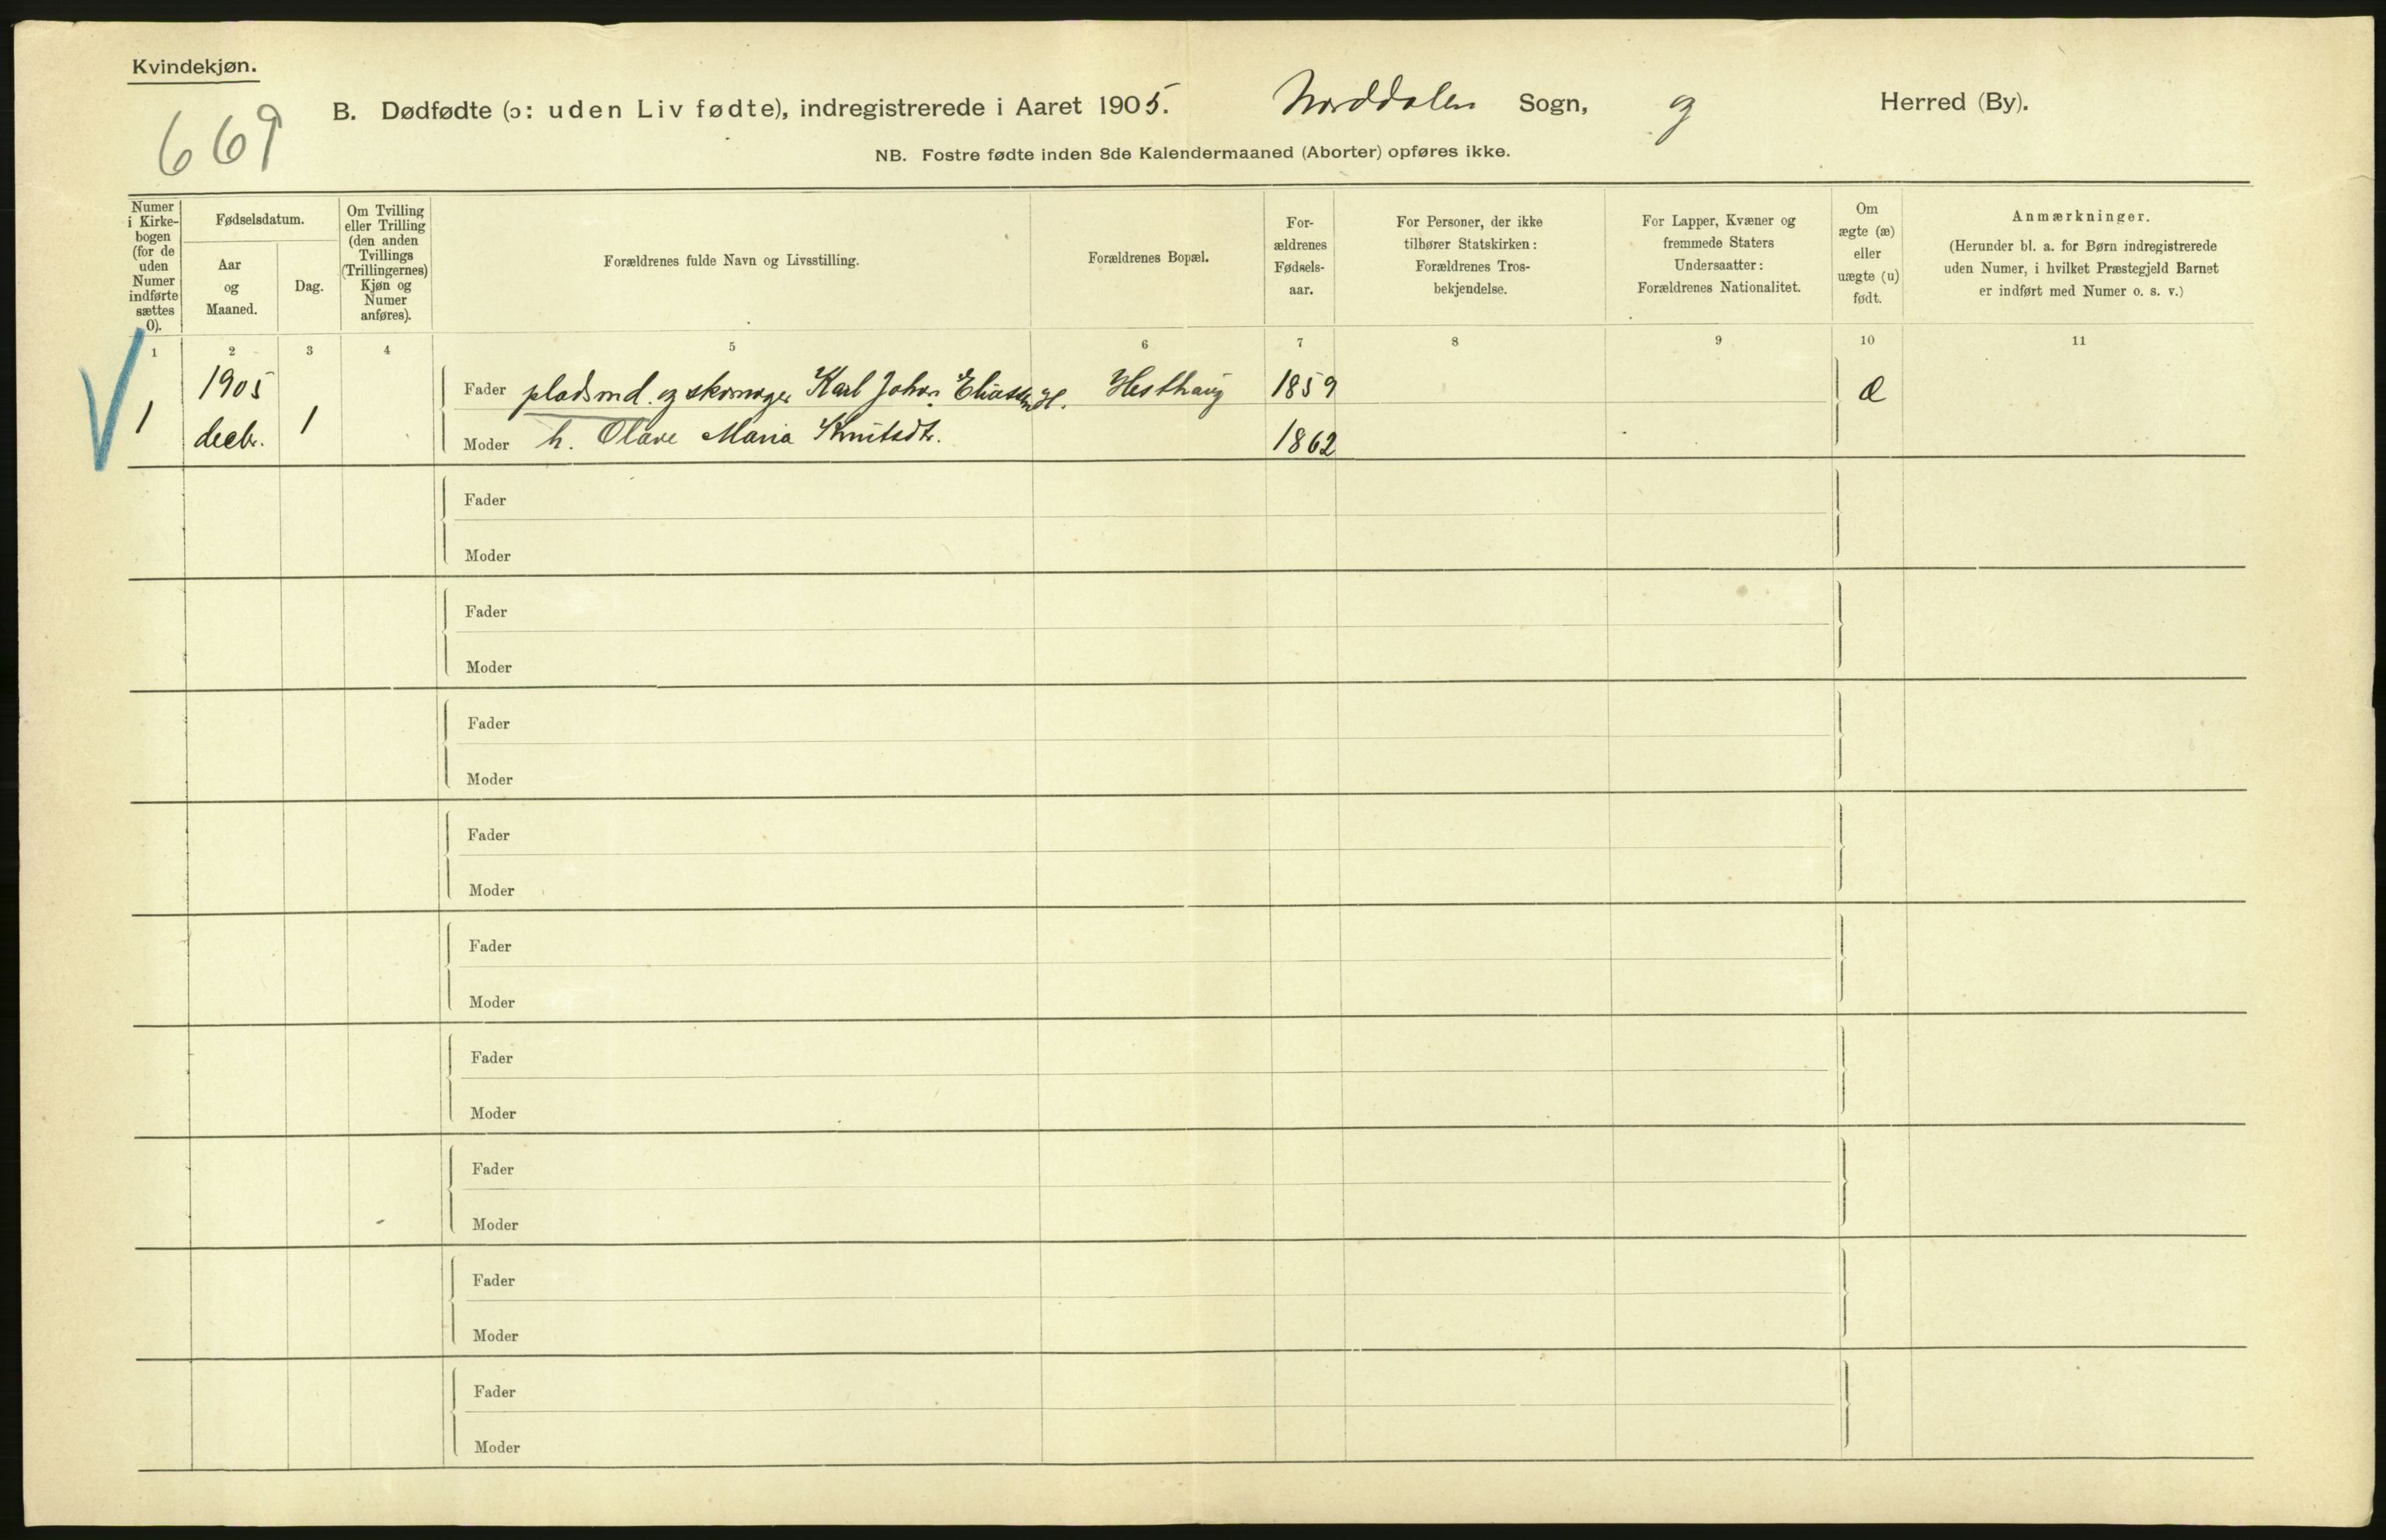 Kvindekjøn.
669
B. Dødfødte (ɔ: uden Liv fødte), indregistrerede i Aaret 1905. Norddalen Sogn, og Herred (By).
NB. Fostre fødte inden 8de Kalendermaaned (Aborter) opføres ikke.
Numer
i Kirke-
bogen
(for de
uden
Numer
indførte
sættes
0).
Fødselsdatum.
Aar
og
Maaned.
Dag.
Om Tvilling
eller Trilling
(den anden
Tvillings
(Trillingernes)
Kjøn og
Numer
anføres).
Forældrenes fulde Navn og Livsstilling.
Forældrenes Bopæl.
For-
ældrenes
Fødsels-
aar.
For Personer, der ikke
tilhører Statskirken:
Forældrenes Tros-
bekjendelse.
For Lapper, Kvæner og
fremmede Staters
Undersaatter:
Forældrenes Nationalitet.
Om
ægte (æ)
eller
uægte (u)
født.
Anmærkninger.
(Herunder bl. a. for Børn indregistrerede
uden Numer, i hvilket Præstegjeld Barnet
er indført med Numer o. s. v.)
1 2 3 4 5 6 7 8 9 10 11
1 1905 decbr. 1
Fader pladsmd. og skomager Karl Johan Eliassen H. Hesthaug 1859 Æ
Moder h. Olave Maria Knutsdtr. 1862
Fader
Moder
Fader
Moder
Fader
Moder
Fader
Moder
Fader
Moder
Fader
Moder
Fader
Moder
Fader
Moder
Fader
Moder